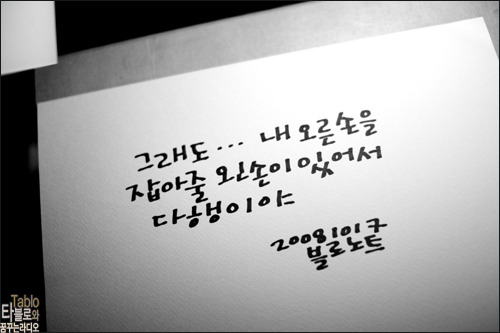 그래도... 내 오른손을
잡아줄 왼손이 있어서
다행이야
20081017
블로노트
Tablo
타블로와
꿈꾸는라디오